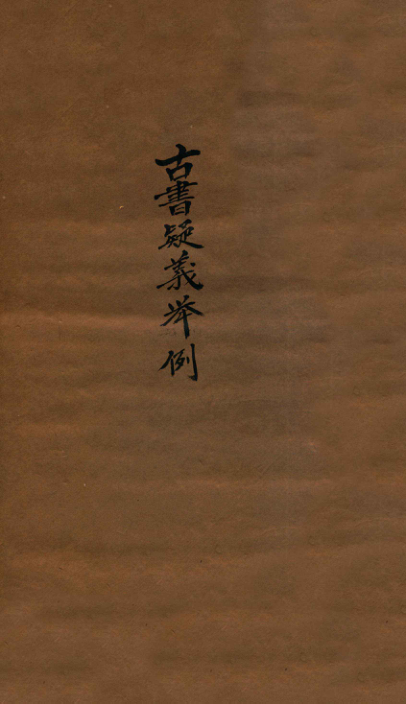 古書疑義举例